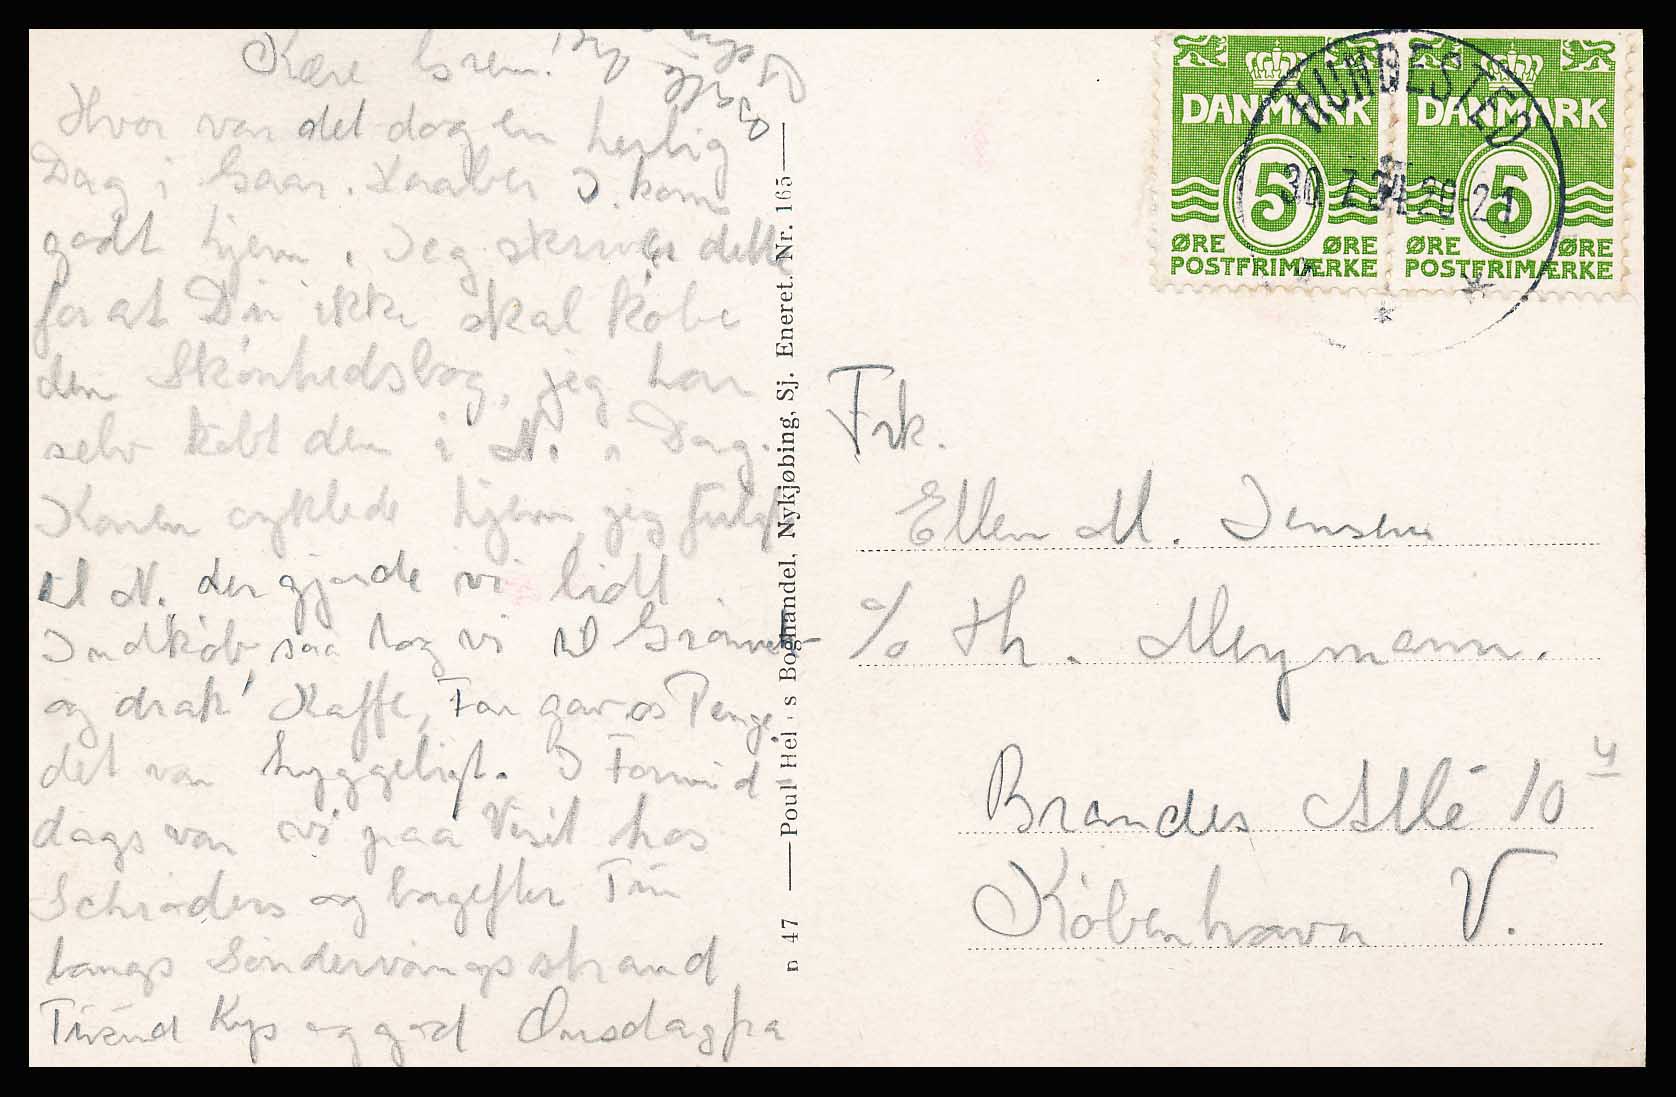 Kære
Hvor var det dog en herlig
Dag i Gaar. Haaber I kom
godt hjem. Jeg skriver dette
for at Du ikke skal købe
den Skønhedsbog, jeg har
selv købt den i N. i Dag.
Karen cyklede hjem, jeg fulgte
til N. der gjorde vi lidt
Indkøb, saa tog vi til
og drak Kaffe, Far gav os Penge.
det var hyggeligt. I Formid
dags var vi paa Visit hos
Schrøders og bagefter Tur
langs Søndervangsstrand
Kys og god Onsdag fra
n 47 — Poul Hel s Boghandel, Nykjøbing, Sj. Eneret. Nr. 165 —
DANMARK DANMARK
5 5
ØRE ØRE ØRE ØRE
POSTFRIMÆRKE POSTFRIMÆRKE
HUNDESTED
30.7.34. 20-21
Frk.
Ellen M. Jensen
c/o Th. Meymann.
Brandes Allé 10 4
København V.